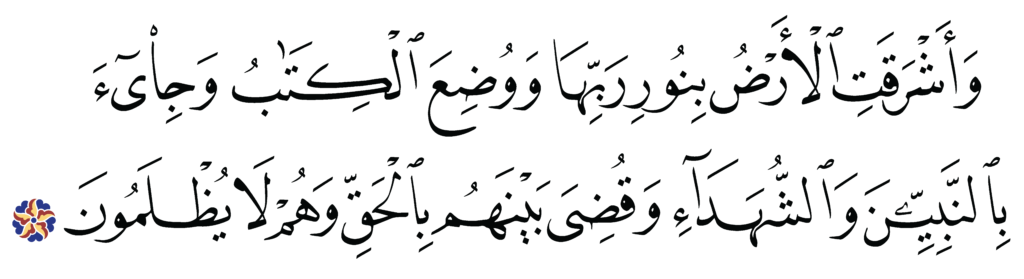 وَأَشْرَقَتِ ٱلْأَرْضُ بِنُورِ رَبِّهَا وَوُضِعَ ٱلْكِتَٰبُ وَجِا۟ىٓءَ
بِٱلنَّبِيِّـۧنَ وَٱلشُّهَدَآءِ وَقُضِىَ بَيْنَهُم بِٱلْحَقِّ وَهُمْ لَا يُظْلَمُونَ